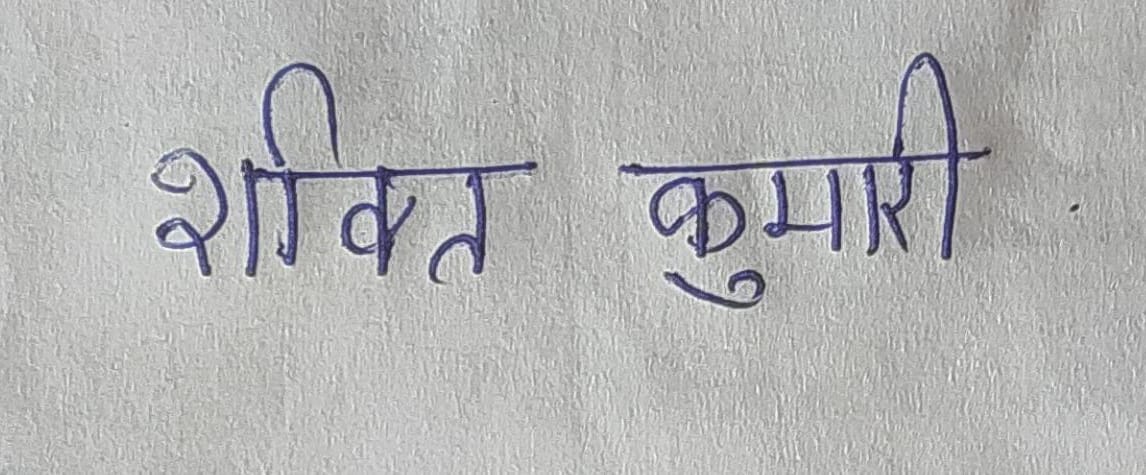 शक्ति कुमारी